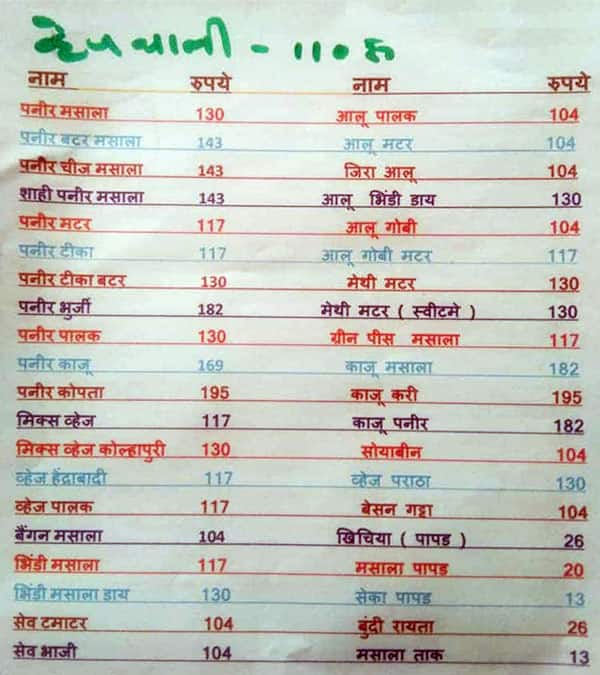 व्हेज थाली - 110 रु
नाम रुपये नाम रुपये
पनीर मसाला 130 आलू पालक 104
पनीर बटर मसाला 143 आलू मटर 104
पनीर चीज मसाला 143 जिरा आलू 104
शाही पनीर मसाला 143 आलू भिंडी डाय 130
पनीर मटर 117 आलू गोबी 104
पनीर टीका 117 आलू गोबी मटर 117
पनीर टीका बटर 130 मेथी मटर 130
पनीर भुर्जी 182 मेथी मटर ( स्वीटमे ) 130
पनीर पालक 130 ग्रीन पीस मसाला 117
पनीर काजू 169 काजू मसाला 182
पनीर कोपता 195 काजू करी 195
मिक्स व्हेज 117 काजू पनीर 182
मिक्स व्हेज कोल्हापुरी 130 सोयाबीन 104
व्हेज हेंद्राबादी 117 व्हेज पराठा 130
व्हेज पालक 117 बेसन गट्टा 104
बैंगन मसाला 104 खिचिया ( पापड ) 26
भिंडी मसाला 117 मसाला पापड 20
भिंडी मसाला डाय 130 सेका पापड 13
सेव टमाटर 104 बुंदी रायता 26
सेव भाजी 104 मसाला ताक 13